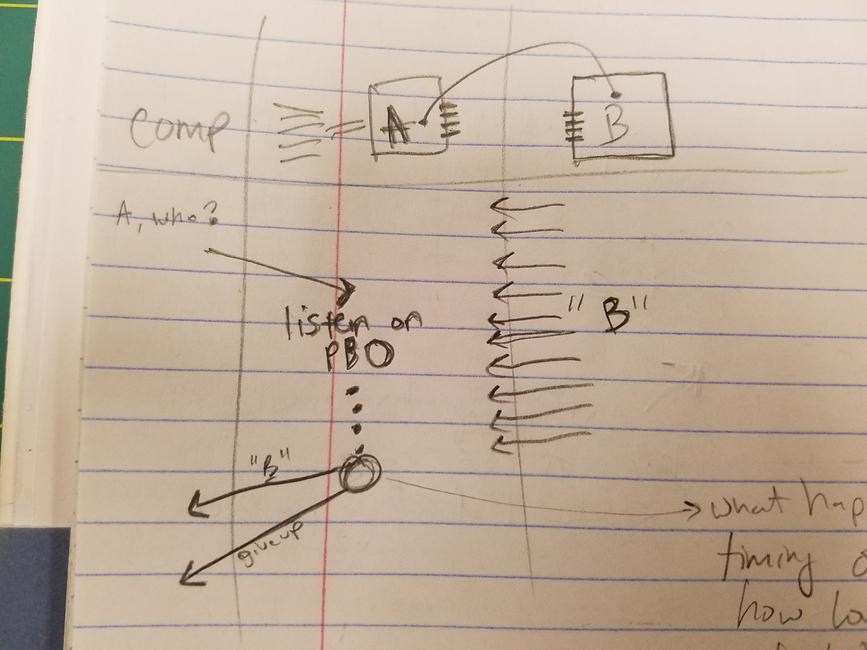 comp A B
A, who?
listen on
PB0
"B"
"B"
give up
what hap
timing o
how lo